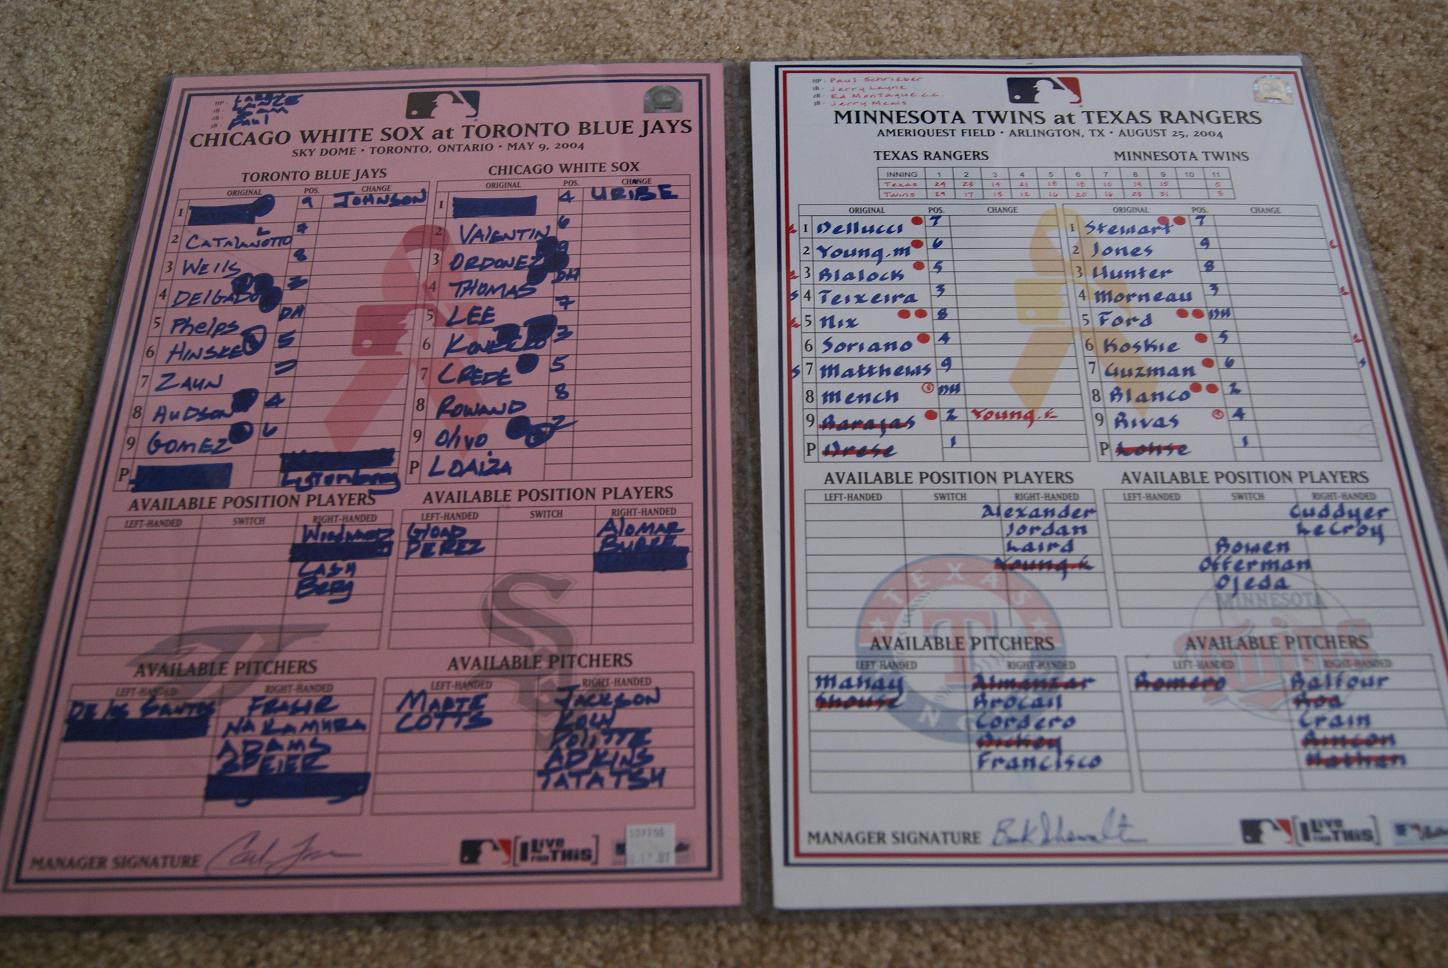 LANCE
SAM
Paul
CHICAGO WHITE SOX at TORONTO BLUE JAYS
SKY DOME • TORONTO, ONTARIO • MAY 9, 2004
TORONTO BLUE JAYS
ORIGINAL POS. CHANGE
1 9 JOHNSON
2 CATALANOTTO L 7
3 WELLS 8
4 DELGADO 3
5 Phelps DH
6 HINSKE 5
7 ZAUN
8 HUDSON 4
9 GOMEZ 6
P
CHICAGO WHITE SOX
ORIGINAL POS. CHANGE
1 4 URIBE
2 VALENTIN 6
3 ORDONEZ 9
4 THOMAS DH
5 LEE 7
6 3
7 CREDE 5
8 ROWAND 8
9 Olivo 2
P LOAIZA
AVAILABLE POSITION PLAYERS
LEFT-HANDED SWITCH RIGHT-HANDED
CASH
Berg
AVAILABLE POSITION PLAYERS
LEFT-HANDED SWITCH RIGHT-HANDED
GLOAD ALOMAR
PEREZ BURKE
AVAILABLE PITCHERS
LEFT-HANDED RIGHT-HANDED
FRASOR
NAKAMURA
ADAMS
SPEIER
AVAILABLE PITCHERS
LEFT-HANDED RIGHT-HANDED
MARTE JACKSON
COTTS KOCH
POLITTE
ADKINS
MANAGER SIGNATURE
[I Live FOR THIS]
HP - Paul Schrieber
1B - Jerry Layne
2B - Ed Montague c.c.
3B - Jerry Meals
MINNESOTA TWINS at TEXAS RANGERS
AMERIQUEST FIELD • ARLINGTON, TX • AUGUST 25, 2004
TEXAS RANGERS MINNESOTA TWINS
INNING 1 2 3 4 5 6 7 8 9 10 11
Texas
Twins
ORIGINAL POS. CHANGE
1 Dellucci 7
2 Young.m 6
3 Blalock 5
4 Teixeira 3
5 Nix 8
6 Soriano 4
7 Matthews 9
8 Mench DH
9 Barajas 2 Young.E
P Drese 1
ORIGINAL POS. CHANGE
1 Stewart 7
2 Jones 9
3 Hunter 8
4 Morneau 3
5 Ford DH
6 Koskie 5
7 Guzman 6
8 Blanco 2
9 Rivas 4
P Lohse 1
AVAILABLE POSITION PLAYERS
LEFT-HANDED SWITCH RIGHT-HANDED
Alexander
Jordan
Laird
Young.E
AVAILABLE POSITION PLAYERS
LEFT-HANDED SWITCH RIGHT-HANDED
Cuddyer
LeCroy
Bowen
Offerman
Ojeda
TEXAS
MINNESOTA
AVAILABLE PITCHERS
LEFT-HANDED RIGHT-HANDED
Mahay Almanzar
Shouse Brocail
Cordero
Dickey
Francisco
AVAILABLE PITCHERS
LEFT-HANDED RIGHT-HANDED
Romero Balfour
Roa
Crain
Rincon
Nathan
MANAGER SIGNATURE
[I Live FOR THIS]